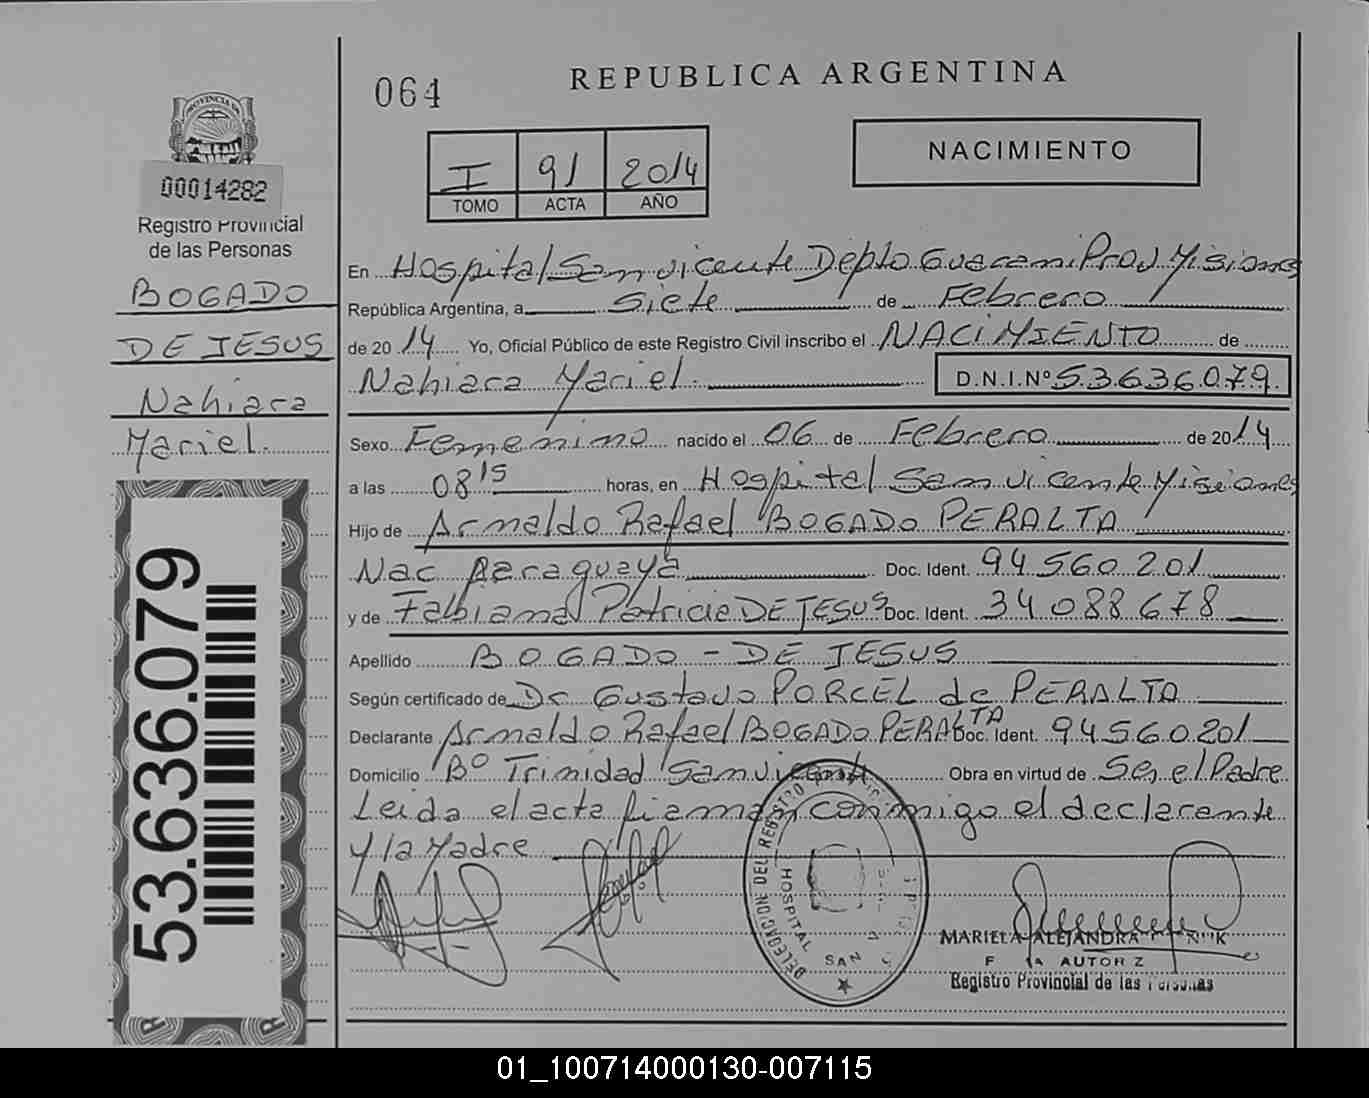 064
REPUBLICA ARGENTINA
PROVINCIA
00014282
Registro Provincial
de las Personas
BOGADO
DE JESUS
Nahiara
Mariel.
53.636.079
I 91 2014
TOMO ACTA AÑO
NACIMIENTO
En Hospital San vicente Dépto Guarani Prov Misiones
República Argentina, a Siete de Febrero
de 2014 Yo, Oficial Público de este Registro Civil inscribo el NACIMIENTO de
Nahiara Mariel. D.N.I.Nº 53.636.079.
Sexo Femenino nacido el 06 de Febrero de 2014
a las 08 15 horas, en Hospital San vicente Misiones
Hijo de Arnaldo Rafael BOGADO PERALTA
Nac Paraguaya Doc. Ident. 94 560 201
y de Fabiana Patricia DE JESUS Doc. Ident. 34 088 678
Apellido BOGADO - DE JESUS
Según certificado de Dr Gustavo PORCEL de PERALTA
Declarante Arnaldo Rafael BOGADO PERALTA Doc. Ident. 94 560 201
Domicilio Bº Trinidad San vicente Obra en virtud de Ser el Padre
Leida el acta firman conmigo el declarante
y la Madre
DELEGACION DEL REGISTRO
HOSPITAL SAN
MARIELA ALEJANDRA
Registro Provincial de las Personas
01_100714000130-007115